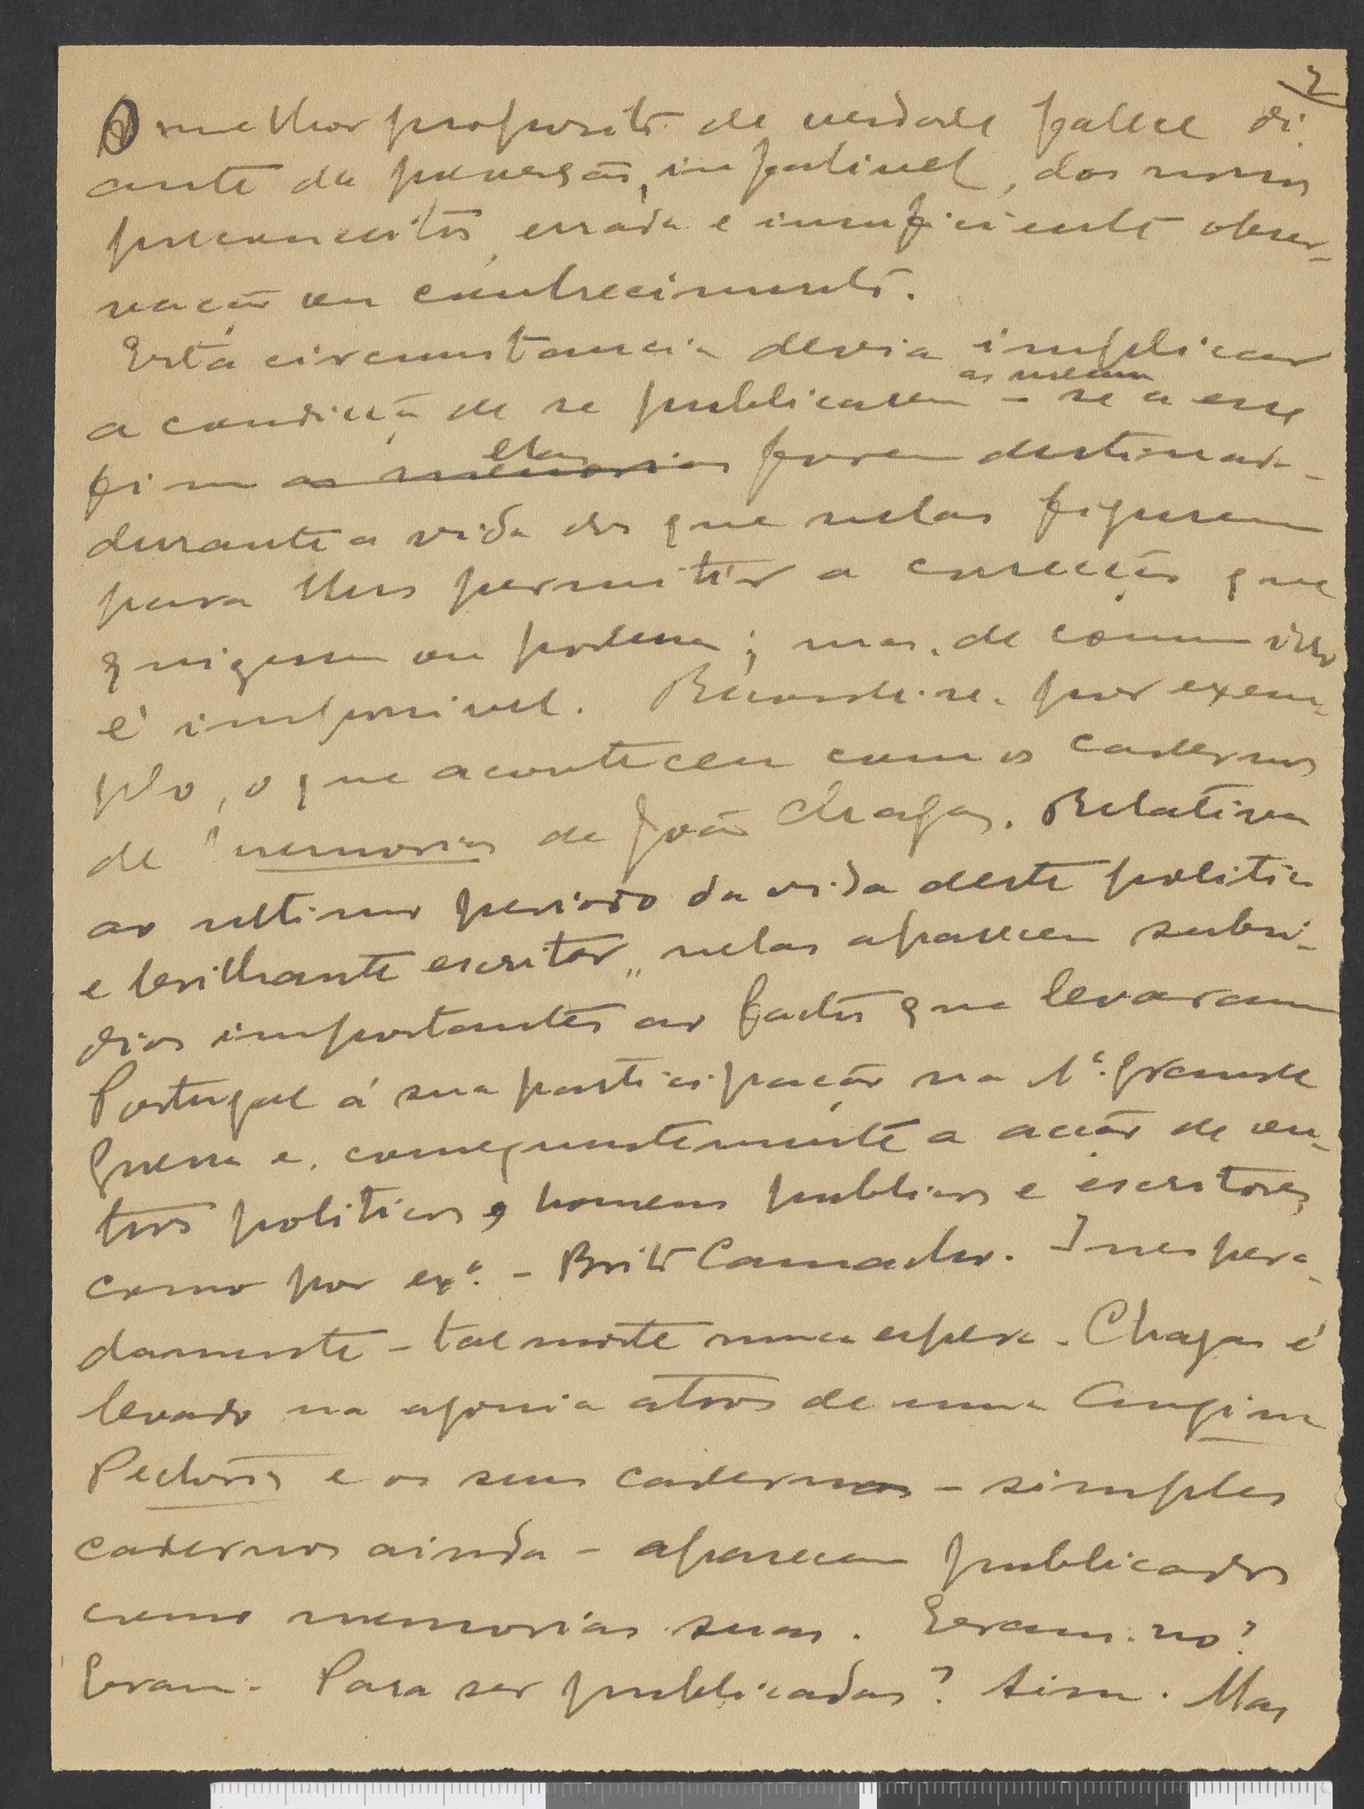 2
O melhor proposito de verdade falece di-
ante da perversão, infalivel, dos nossos
preconceitos, errada e insuficiente obser-
vação ou conhecimento.
Esta circumstancia devia implicar
a condição de se publicarem as mesmas - se a esse
fim as memorias elas forem destinadas -
durante a vida dos que nelas figurem
para lhes permitir a correcção que
quizessem ou podessem; mas, de comum isso
é impossivel. Recorde-se, por exem-
plo, o que aconteceu com os cadernos
de memorias de João Chagas. Relativas
ao ultimo periodo da vida deste politico
e brilhante escritor, nelas aparecem subsi-
dios importantes ao factos que levaram
Portugal á sua participação na 1ª. grande
guerra e, consequentemente a acção de ou-
tros politicos, homens publicos e escritores
como por exº. - Brito Camacho. Inespera-
damente - tal morte nunca espera - Chagas é
levado na agonia atroz de uma Angina
Pectoris e os seus cadernos - simples
cadernos ainda - aparecem publicados
como memorias suas. Eram-no?
Eram. Para ser publicadas? Sim. Mas